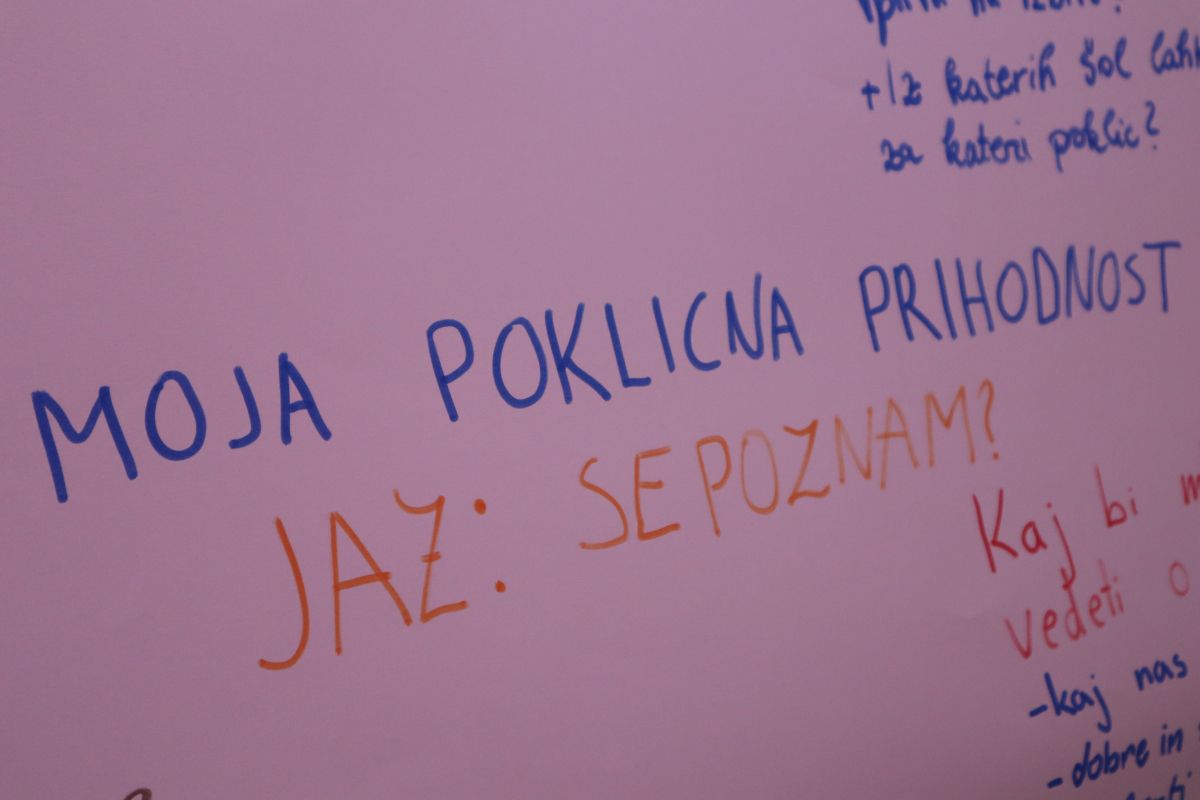 na
+ Iz katerih šol
za kateri poklic?
MOJA POKLICNA PRIHODNOST
JAZ: SE POZNAM?
Kaj bi
vedeti o
-kaj nas
-dobre in